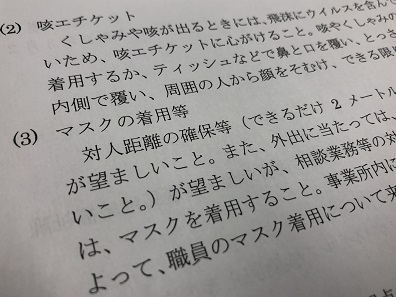 (2) 咳エチケット
くしゃみや咳が出るときには、飛沫にウイルスを含んで
いため、咳エチケットに心がけること。咳やくしゃみの
着用するか、ティッシュなどで鼻と口を覆い、とっさ
内側で覆い、周囲の人から顔をそむけ、できる限
(3) マスクの着用等
対人距離の確保等（できるだけ 2 メートル
が望ましいこと。また、外出に当たっては、
いこと。）が望ましいが、相談業務等の対
は、マスクを着用すること。事業所内に
よって、職員のマスク着用について来